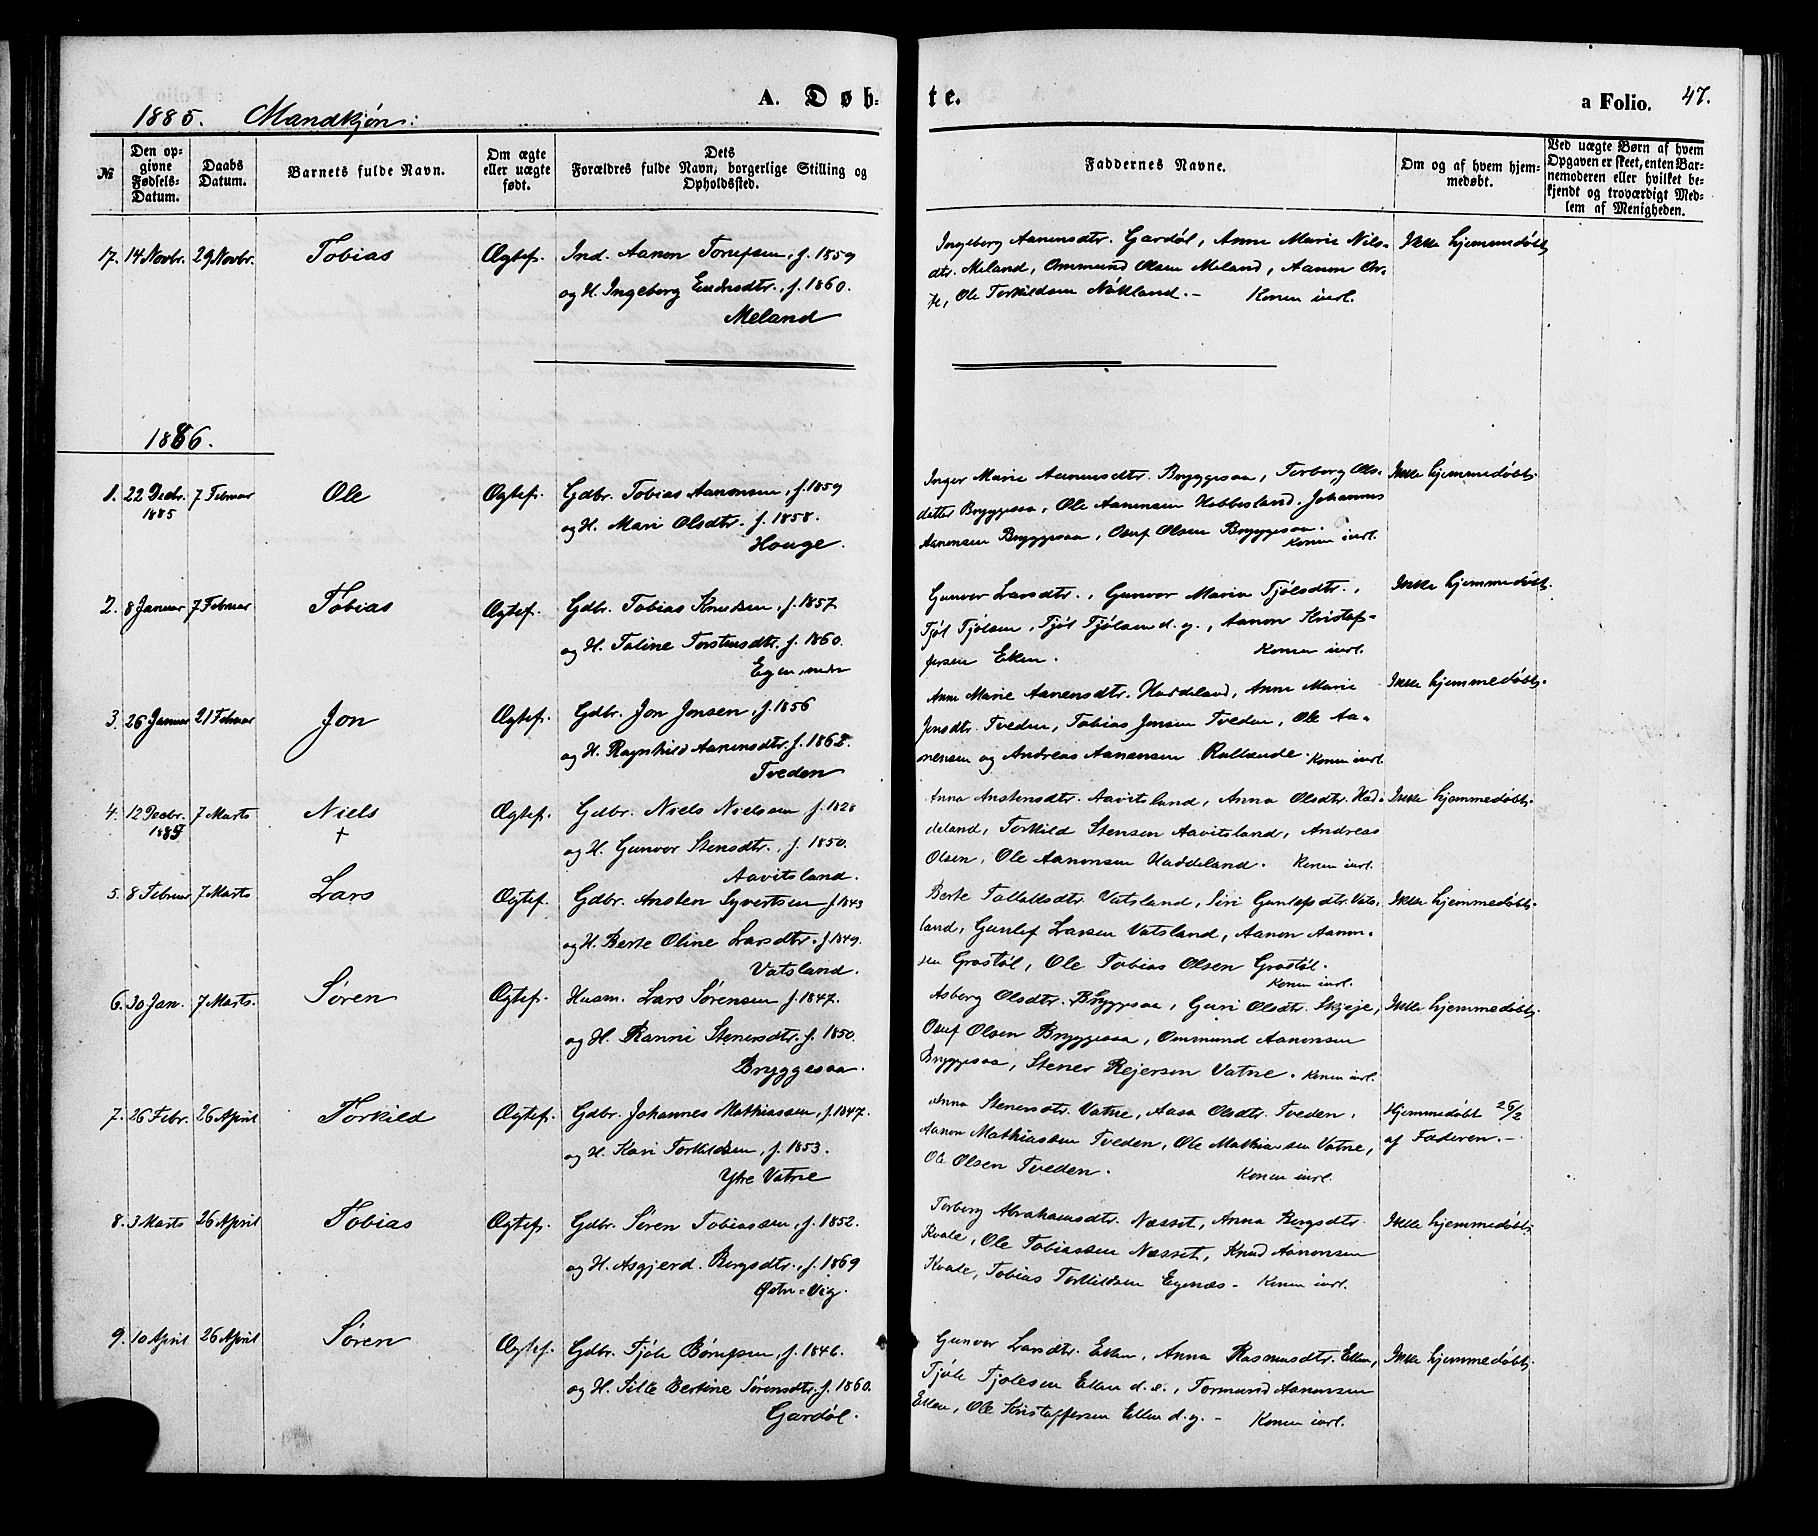 1885. Mandkjøn:
A. Døb-
te.
a Folio. 47.
№
Den opgivne Fødsels-Datum.
Daabs Datum.
Barnets fulde Navn.
Om ægte eller uægte født.
Dets Forældres fulde Navn, borgerlige Stilling og Opholdssted.
Faddernes Navne.
Om og af hvem hjemmedøbt.
Ved uægte Børn af hvem Opgaven er skeet, enten Barnemoderen eller hvilket bekjendt og troværdigt Medlem af Menigheden.
17. 14 Novbr. 29 Novbr. Tobias Ægtef. Ind. Aanon Torjusen, f. 1859
og H. Ingeborg Endresdtr., f. 1860.
Meland
Ingeborg Aanensdtr. Gardøl, Anne Marie Nils-
dtr. Meland, Ommund Olsen Meland, Aanon
Ole Torkildsen Nökland. - Konen intl.
Ikke hjemmedøbt.
1886.
1. 22 Decbr. 7 Februar Ole Ægtef. Gdbr. Tobias Aanonsen, f. 1859
1885
og H. Mari Olsdtr. f. 1858.
Houge.
Inger Marie Aanensdtr. Bryggesaa, Torborg Ols-
datter Bryggesaa, Ole Aanensen Hobbesland, Johannes
Aanonsen Bryggesaa, Osuf Olsen Bryggesaa.
Konen intl.
Ikke hjemmedøbt.
2. 8 Januar 7 Februar Tobias Ægtef. Gdbr. Tobias Knudsen, f. 1857
og H. Taline Torstensdtr. f. 1860.
Gunvor Larsdtr., Gunvor Maria Tjölsdtr.,
Tjöl Tjölsen, Tjöl Tjölsen d. y., Aanon Kristof-
fersen Eken. Konen intl.
Ikke hjemmedøbt.
3. 26 Januar 21 Februar Jon Ægtef. Gdbr. Jon Jonsen, f. 1856
og H. Ragnhild Aanensdtr. f. 1862.
Tveden
Anne Marie Aanensdtr. Haddeland, Anne Marie
Jensdtr. Tveden, Tobias Jensen Tveden, Ole Aa-
nensen og Andreas Aanensen Konen intl.
Ikke hjemmedøbt.
4. 12 Decbr. 7 Marts Niels Ægtef. Gdbr. Niels Nielsen f. 1828
1885 +
og H. Gunvor Stensdtr., f. 1850.
Aavitsland.
Anna Anstensdtr. Aavitsland, Anna Olsdtr. Had-
deland, Torkild Stensen Aavitsland, Andreas
Olsen, Ole Aanonsen Haddeland. Konen intl.
Ikke hjemmedøbt.
5. 8 Februar 7 Marts Lars Ægtef. Gdbr. Ansten Syvertsen f. 1843
og H. Berte Oline Larsdtr. f. 1849.
Vatsland.
Berte Tallaksdtr. Vatsland, Siri Gunlefsdtr. Vats-
land, Gunlef Larsen Vatsland, Aanon Aanon-
sen Grostøl, Ole Tobias Olsen Grostøl.
Konen intl.
Ikke hjemmedøbt.
6. 30 Jan. 7 Marts. Søren Ægtef. Husm. Lars Sørensen f. 1847.
og H. Ranni Stenersdtr. f. 1850.
Bryggesaa.
Asborg Olsdtr. Bryggesaa, Guri Olsdtr. Skjeje,
Osuf Olsen Bryggesaa, Ommund Aanonsen
Bryggesaa, Stener Rejersen Vatne. Konen intl.
Ikke hjemmedøbt.
7. 26 Febr. 26 April Torkild Ægtef. Gdbr. Johannes Mathiassen, f. 1847.
og H. Kari Torkildsen, f. 1853.
Ytre Vatne
Anna Stenersdtr. Vatne, Aasa Olsdtr. Tveden,
Aanon Mathiassen Tveden, Ole Mathiassen Vatne,
Ole Olsen Tveden. Konen intl.
Hjemmedøbt 26/2
af Faderen. -
8. 3 Marts 26 April Tobias Ægtef. Gdbr. Søren Tobiassen, f. 1852.
og H. Asgjerd. Bergsdtr., f. 1869
Torborg Abrahamsdtr. Næsset, Anna Bergsdtr.
Kvale, Ole Tobiassen Næsset, Knud Aanonsen
Kvale, Tobias Torkildsen Egenæs - Konen intl.
Ikke hjemmedøbt.
9. 10 April 26 April Søren Ægtef. Gdbr. Tjöle Børufsen, f. 1846.
og H. Silke Bertine Sørensdtr. f. 1860.
Gardøl.
Gunvor Larsdtr. Eken, Anna Rasmusdtr. Eken,
Tjöle Tjölesen Eken d. e., Tormund Aanonsen
Eken, Ole Kristoffersen Eken d. y. - Konen intl.
Ikke hjemmedøbt.